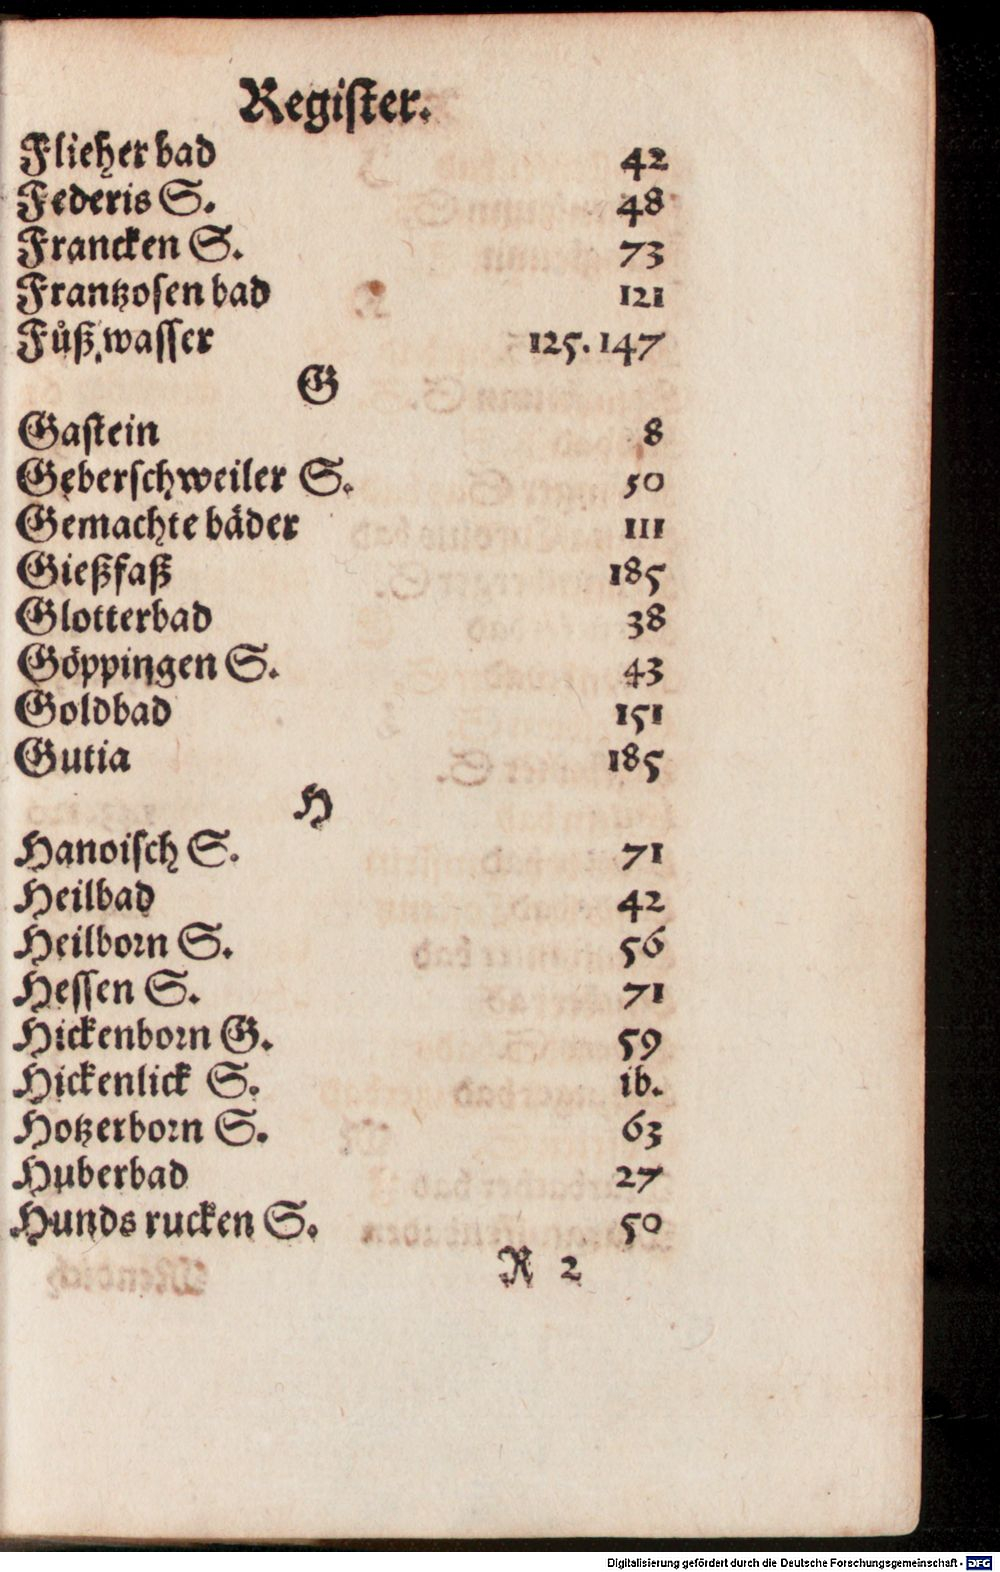 Regiſter.
Flieher bad 42
Federis S. 48
Francken S. 73
Frantzoſen bad 121
Fuͤß waſſer 125. 147
G
Gaſtein 8
Geberſchweiler S. 50
Gemachte bäder 111
Gießfaß 185
Glotterbad 38
Göppingen S. 43
Goldbad 151
Gutia 185
H
Hanoiſch S. 71
Heilbad 42
Heilborn S. 56
Heſſen S. 71
Hickenborn G. 59
Hickenlick S. ib.
Hotzerborn S. 63
Huberbad 27
Hunds rucken S. 50
R 2
Digitalisierung gefördert durch die Deutsche Forschungsgemeinschaft - DFG